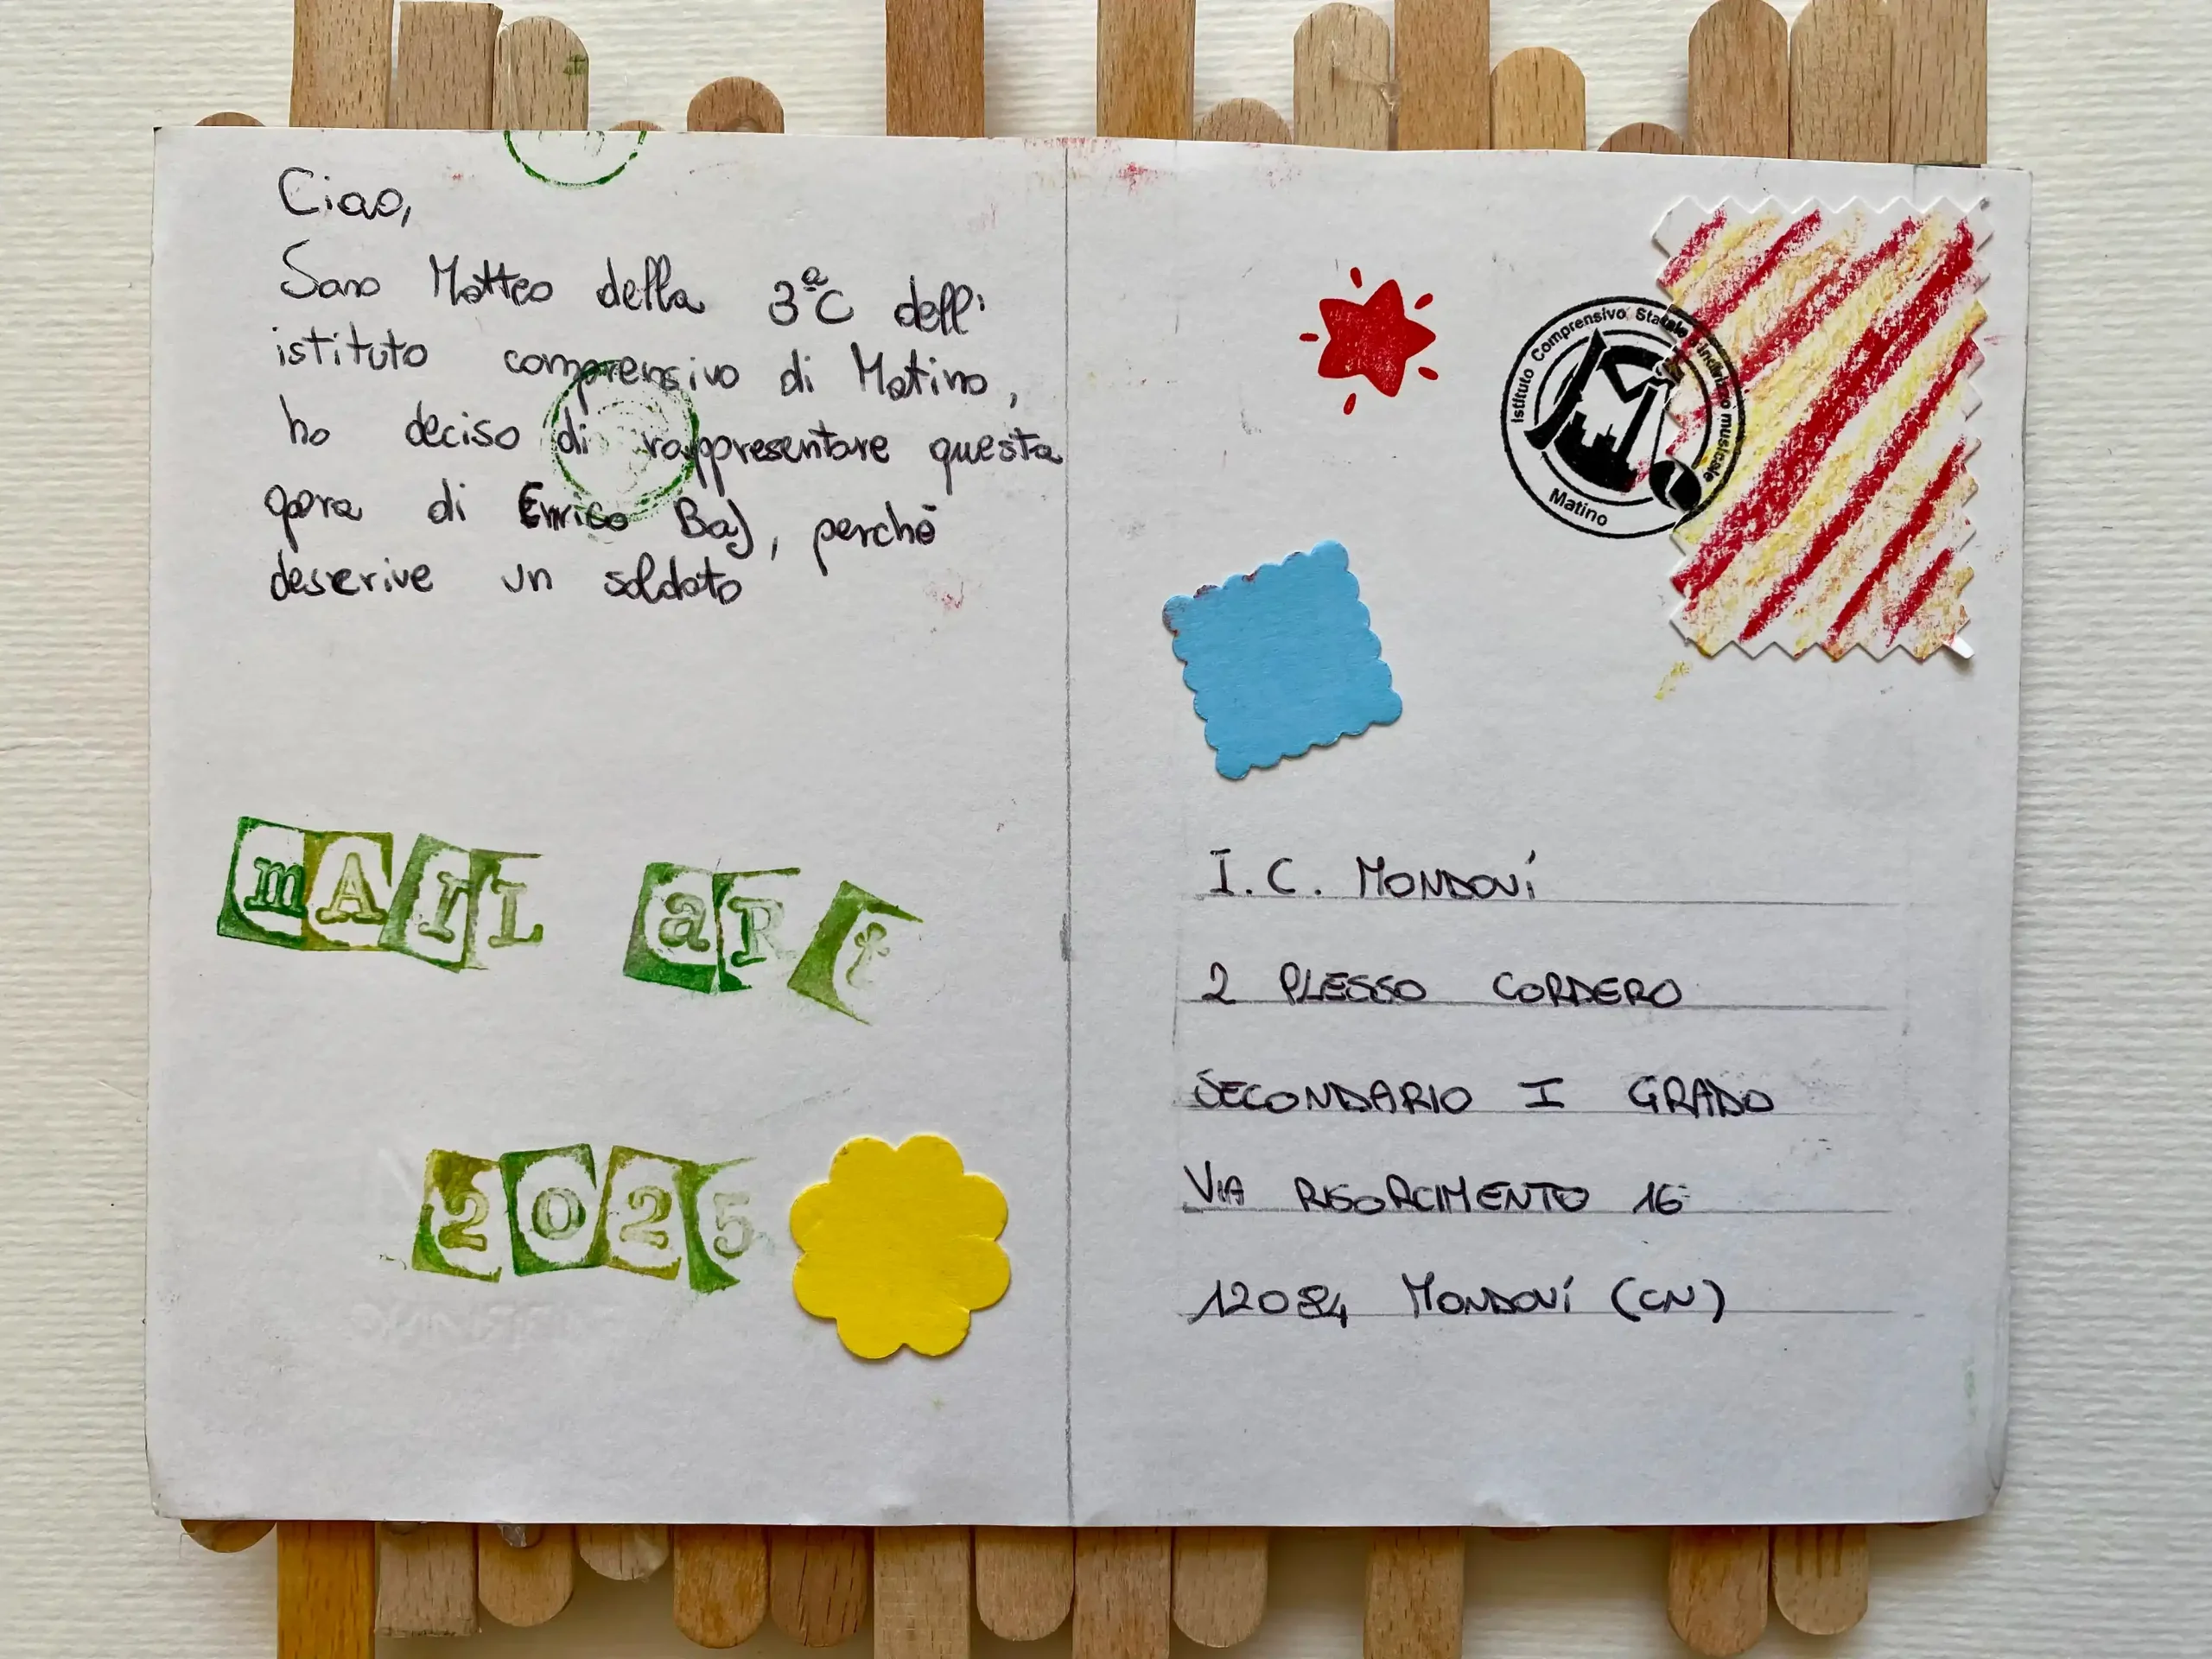 Ciao,
Sono Matteo della 3ªC dell'
istituto comprensivo di Matino,
ho deciso di rappresentare questa
opera di Enrico Baj, perchè
descrive un soldato
mAIL aRt
2025
Istituto Comprensivo Statale a indirizzo musicale
Matino
I.C. MONDOVÍ
2 PLESSO CORDERO
SECONDARIO I GRADO
VIA RISORCIMENTO 16
12084 MONDOVÍ (CN)